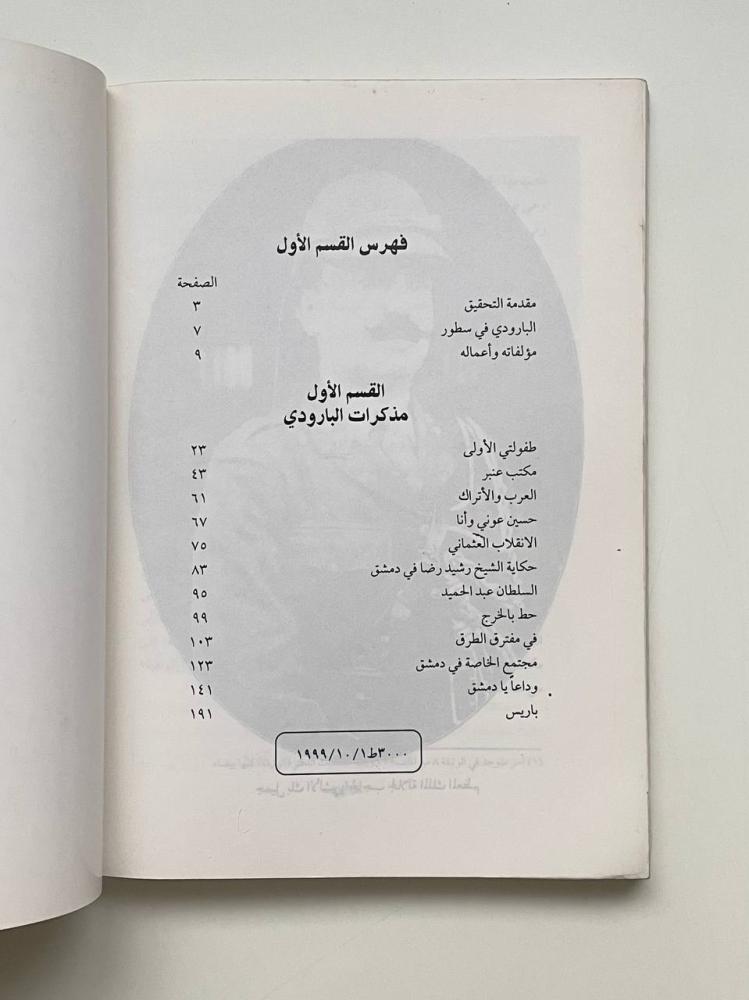 فهرس القسم الأول
الصفحة
مقدمة التحقيق ٣
البارودي في سطور ٧
مؤلفاته وأعماله ٩
القسم الأول
مذكرات البارودي
طفولتي الأولى ٢٣
مكتب عنبر ٤٣
العرب والأتراك ٦١
حسين عوني وأنا ٦٧
الانقلاب العثماني ٧٥
حكاية الشيخ رشيد رضا في دمشق ٨٣
السلطان عبد الحميد ٩٥
حط بالخرج ٩٩
في مفترق الطرق ١٠٣
مجتمع الخاصة في دمشق ١٢٣
وداعاً يا دمشق ١٤١
باريس ١٩١
١٩٩٩/١٠/١ط٣٠٠٠